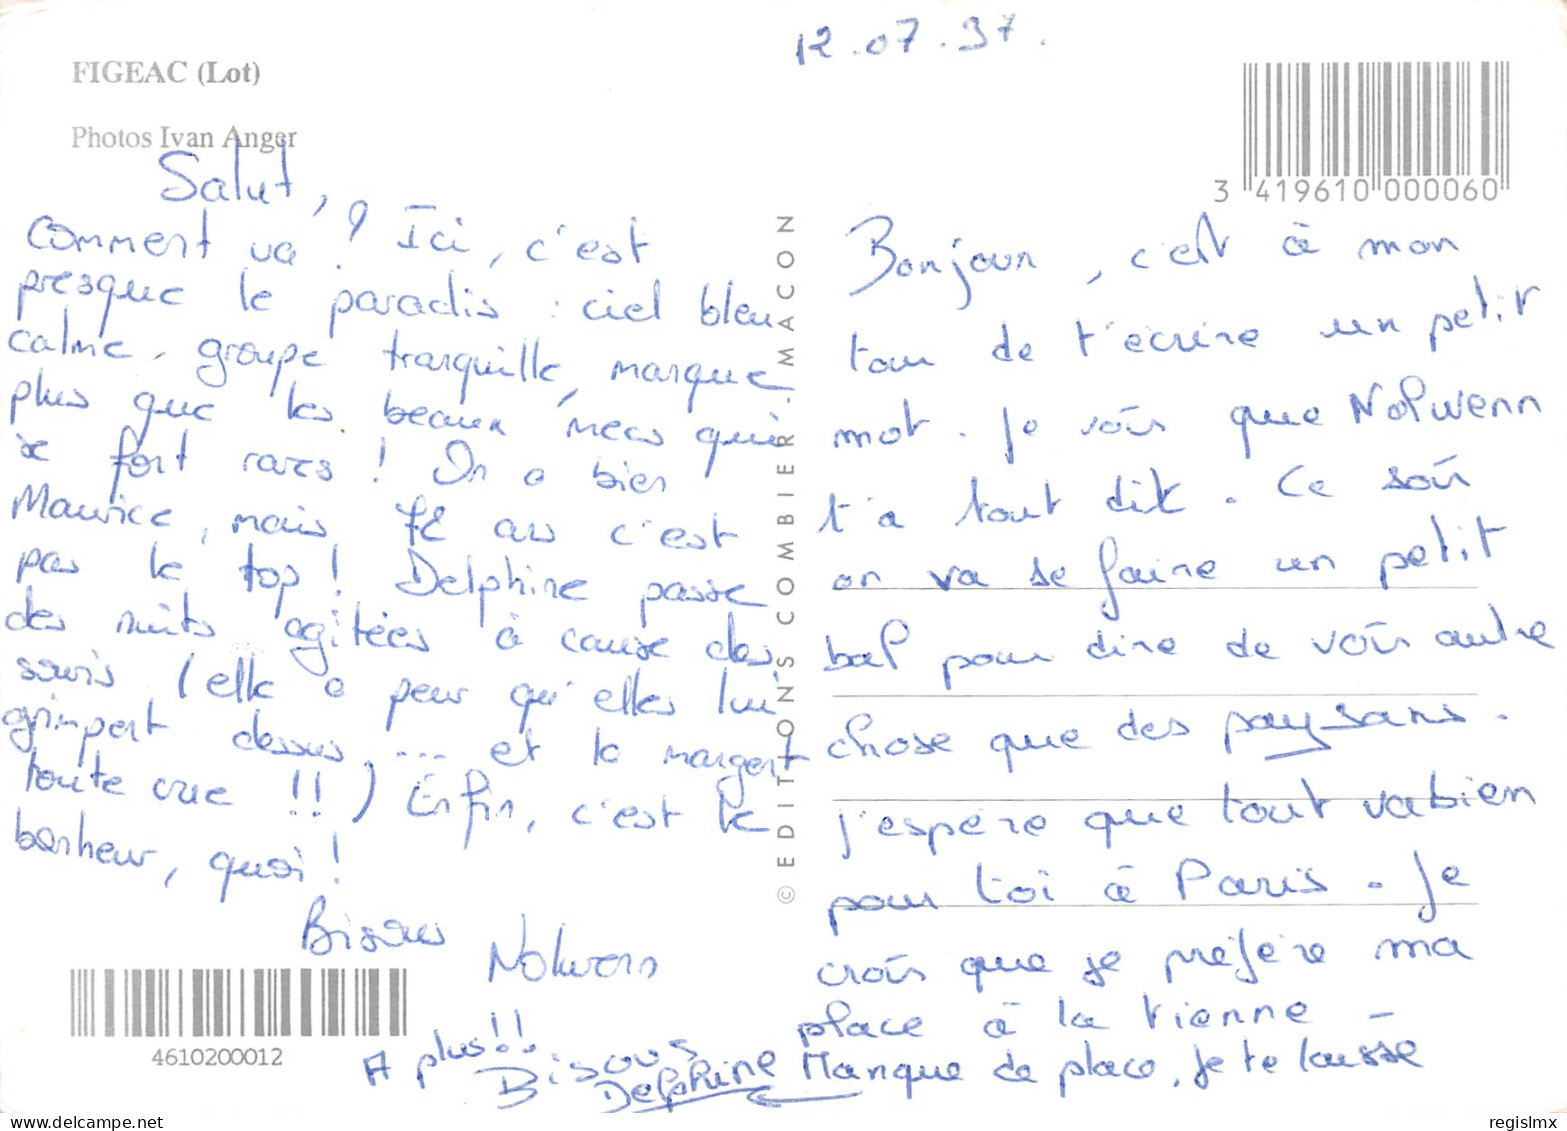 12.07.97.
FIGEAC (Lot)
Photos Ivan Anger
3 419610 000060
Salut,
Comment va ? Ici, c'est
presque le paradis : ciel bleu
calme, groupe tranquille, manque
plus que les beaux mecs qui
se font rares ! On a bien
Maurice, mais 72 ans c'est
pas le top ! Delphine passe
des nuits agitées à cause des
souris (elle a peur qu'elles lui
grimpent dessus, ... et la mangent
toute crue !!) Enfin, c'est le
bonheur, quoi !
Bisous
Nolwenn
A plus!!
Bisous
Delphine
4610200012
© EDITIONS COMBIER - MACON
Bonjour, c'est à mon
tour de t'écrire un petit
mot. Je vois que Nolwenn
t'a tout dit. Ce soir
on va se faire un petit
bal pour dire de voir autre
chose que des paysans.
J'espère que tout va bien
pour toi à Paris. Je
crois que je préfère ma
place à la tienne -
Manque de place, je te laisse
regislmx